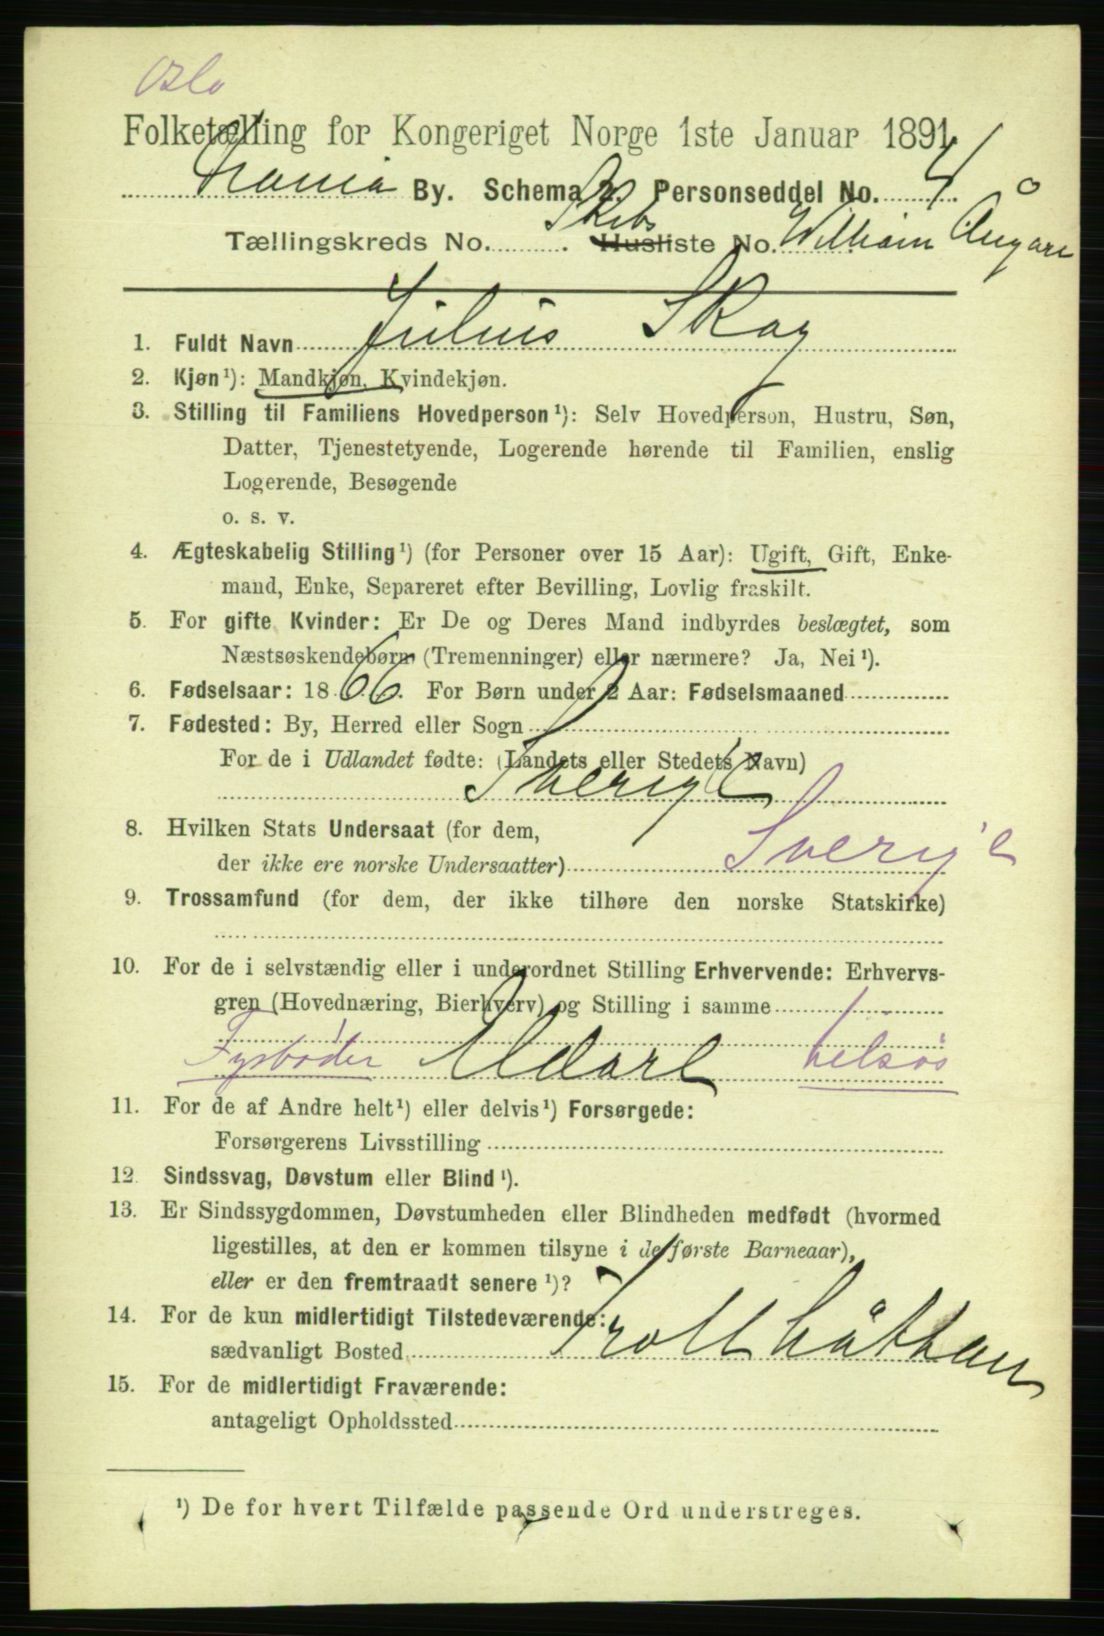 Oslo
Folketælling for Kongeriget Norge 1ste Januar 1891
Krania By. Schema 2. Personseddel No. 4
Tællingskreds No. . Skibs Husliste No. William Ångare
1. Fuldt Navn Julius Skog
2. Kjøn ¹): Mandkjøn, Kvindekjøn.
3. Stilling til Familiens Hovedperson ¹): Selv Hovedperson, Hustru, Søn,
Datter, Tjenestetyende, Logerende hørende til Familien, enslig
Logerende, Besøgende
o. s. v.
4. Ægteskabelig Stilling ¹) (for Personer over 15 Aar): Ugift, Gift, Enke-
mand, Enke, Separeret efter Bevilling, Lovlig fraskilt.
5. For gifte Kvinder: Er De og Deres Mand indbyrdes beslægtet, som
Næstsøskendebørn (Tremenninger) eller nærmere? Ja, Nei ¹).
6. Fødselsaar: 18 66. For Børn under 2 Aar: Fødselsmaaned
7. Fødested: By, Herred eller Sogn
For de i Udlandet fødte: (Landets eller Stedets Navn)
Sverige
8. Hvilken Stats Undersaat (for dem,
der ikke ere norske Undersaatter) Sverige
9. Trossamfund (for dem, der ikke tilhøre den norske Statskirke)
10. For de i selvstændig eller i underordnet Stilling Erhvervende: Erhvervs-
gren (Hovednæring, Bierhverv) og Stilling i samme
Fyrbøder Eldare tilsøs
11. For de af Andre helt ¹) eller delvis ¹) Forsørgede:
Forsørgerens Livsstilling
12. Sindssvag, Døvstum eller Blind ¹).
13. Er Sindssygdommen, Døvstumheden eller Blindheden medfødt (hvormed
ligestilles, at den er kommen tilsyne i de første Barneaar),
eller er den fremtraadt senere ¹)?
14. For de kun midlertidigt Tilstedeværende:
sædvanligt Bosted Trollhåttan
15. For de midlertidigt Fraværende:
antageligt Opholdssted
¹) De for hvert Tilfælde passende Ord understreges.